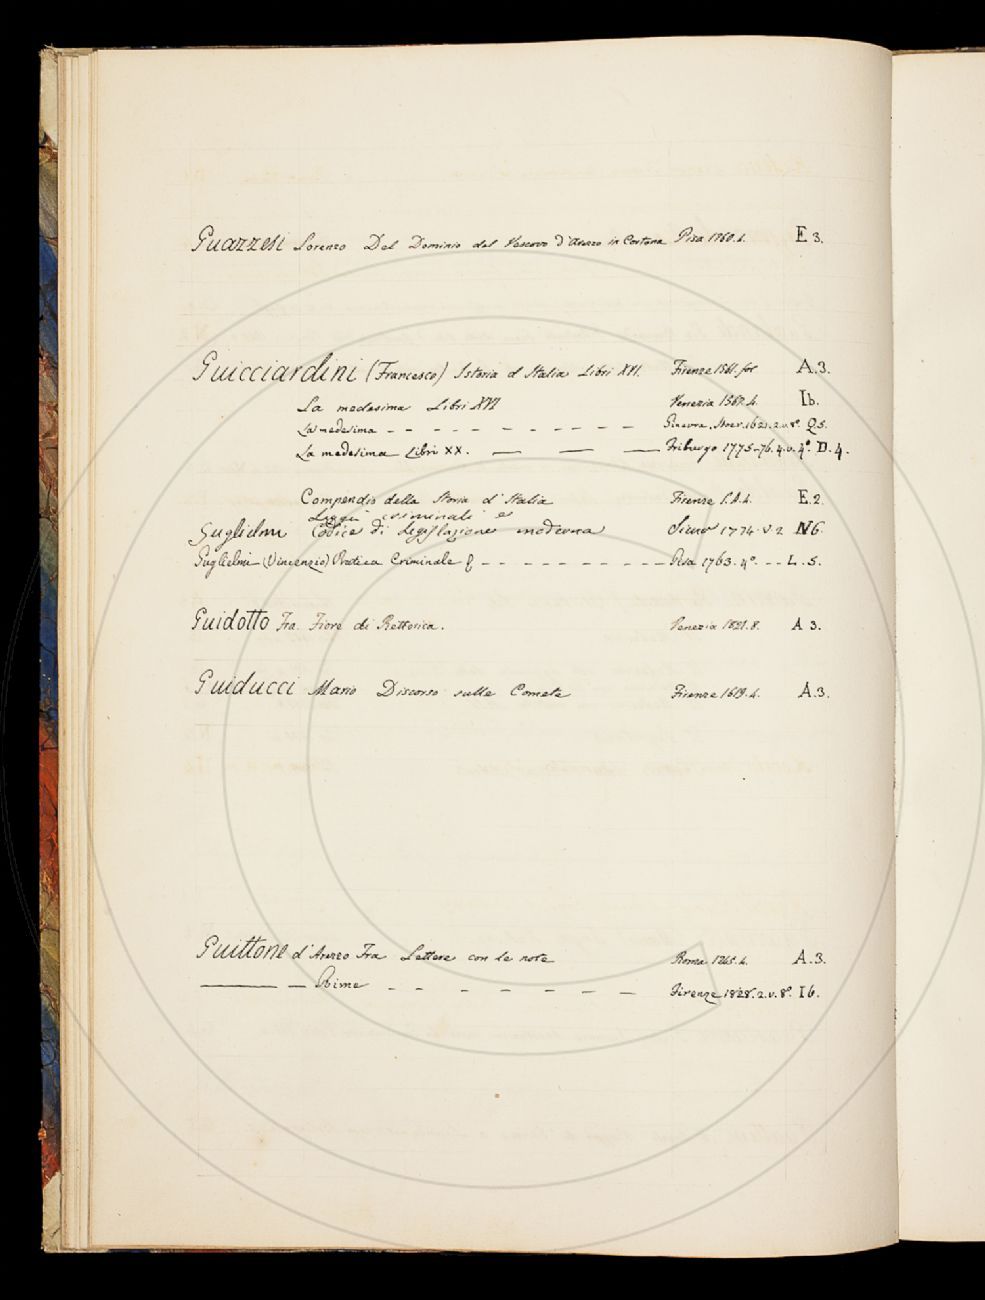 Guazzesi Lorenzo Del Dominio del Vescovo d'Arezzo in Cortona Pisa 1760. 4. E 3.
Guicciardini (Francesco) Istoria d'Italia Libri XVI. Firenze 1561. fol A.3.
La medesima Libri XVI Venezia 1567. 4. Ib.
La medesima – – – – – – – – – – Ginevra, Stoer. 1621. 2. v. 8º. Q 5.
La medesima Libri XX. — — — Friburgo 1775-76. 4. v. 4º. D. 4.
Compendio della Storia d'Italia Firenze 4. E. 2.
Leggi criminali e
Guglielmi Codice di Legislazione moderna Siena 1774 V 2 N 6.
Guglielmi (Vincenzio) Pratica Criminale – – – – – – – – – – Pisa 1763. 4º. – – L. 5.
Guidotto Fra Fiore di Rettorica. Venezia 1821. 8. A 3.
Guiducci Mario Discorso sulle Comete Firenze 1619. 4. A.3.
Guittone d'Arezzo Fra Lettere con le note Roma 1745. 4. A.3.
——— — Rime – – – – – – – – Firenze 1828. 2. v. 8º. Ib.